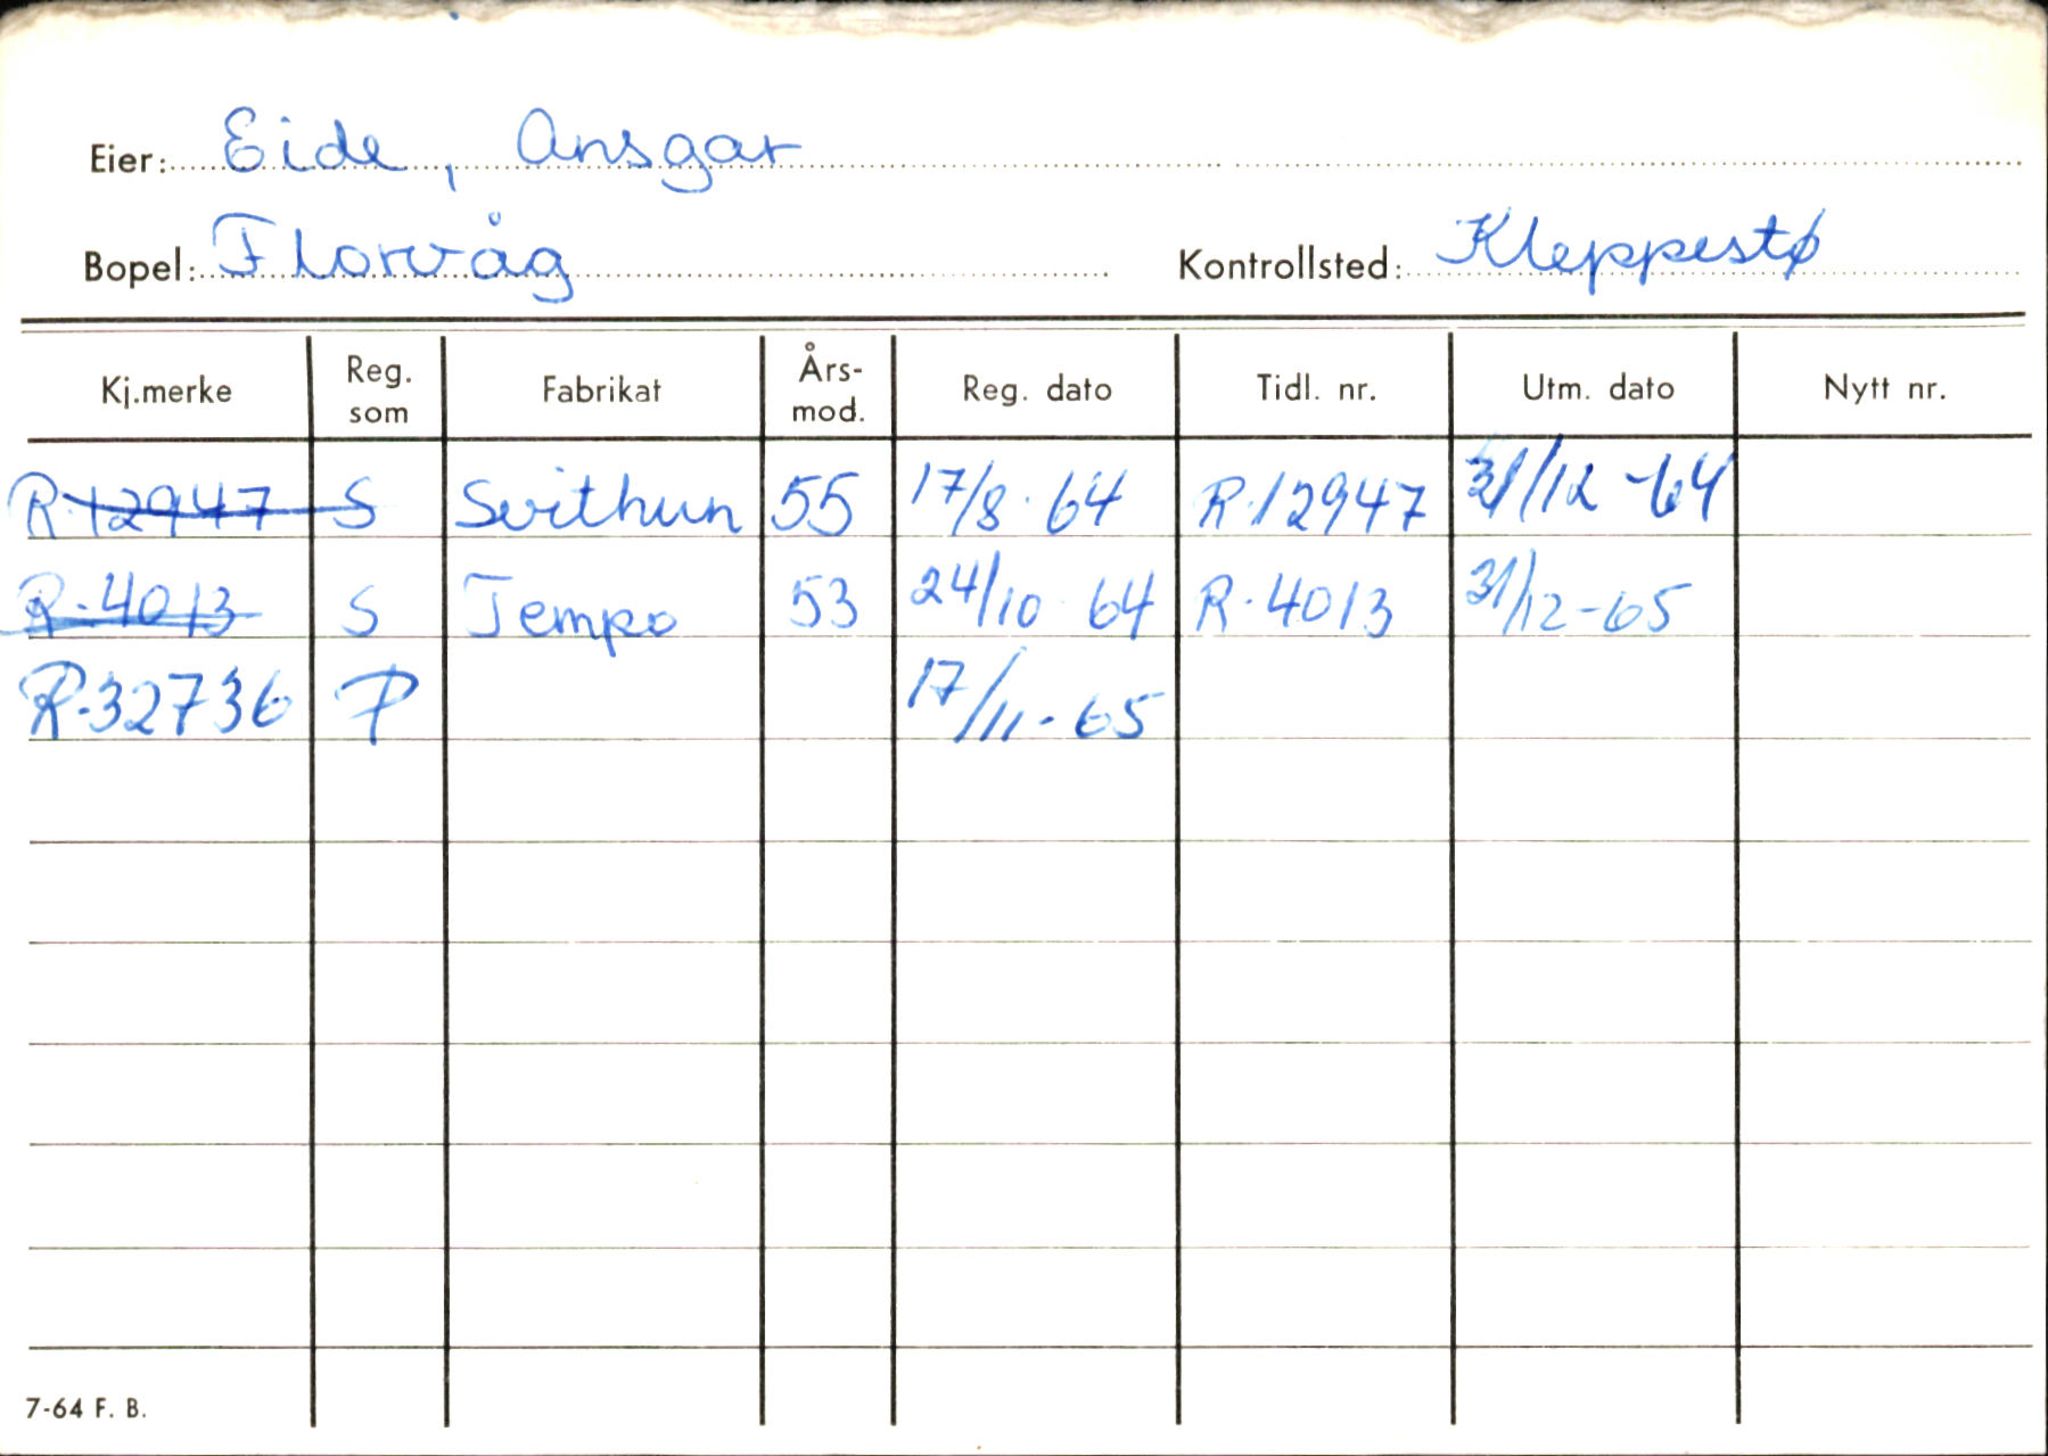 Eier: Eide, Ansgar
Bopel: Florvåg Kontrollsted: Kleppestø
Kj.merke Reg. som Fabrikat Års-mod. Reg. dato Tidl. nr. Utm. dato Nytt nr.
R-12947 S Svithun 55 17/8-64 R-12947 31/12-64
R-4013 S Tempo 53 24/10-64 R-4013 31/12-65
R-32736 P 17/11-65
7-64 F. B.